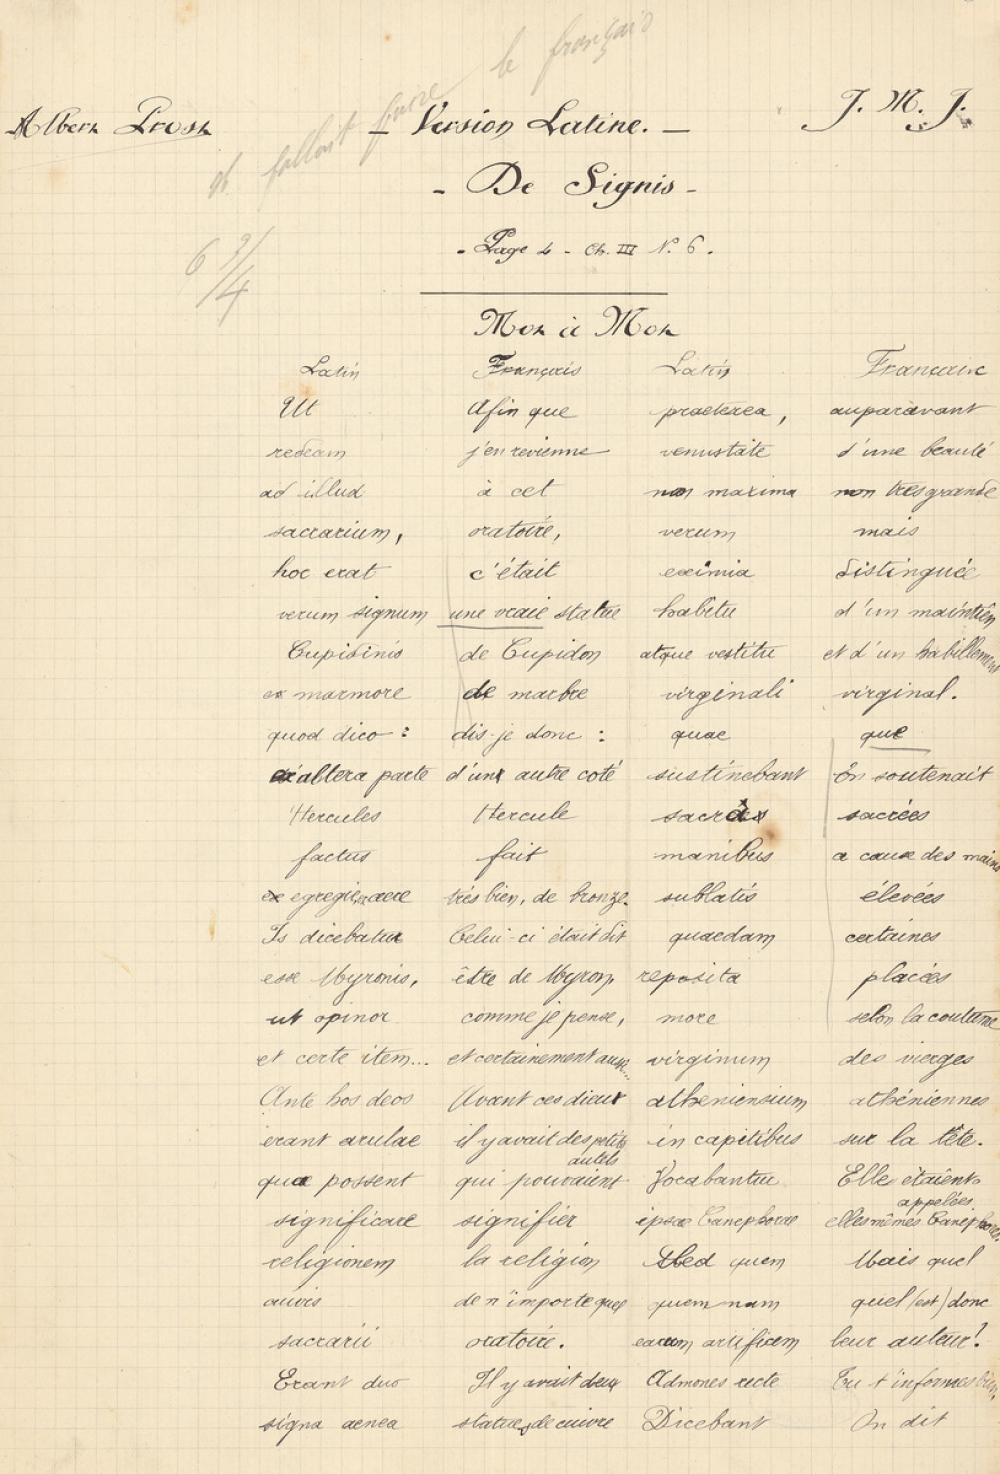 Il fallait faire le français
Albert Prost
— Version Latine. —
J. M. J.
- De Signis -
- Page 4 - Ch. III N. 6.
6 3/4
Mot à Mot
Latin Français Latin Français
Ut Afin que praeterea, auparavant
redeam j'en revienne venustate d'une beauté
ad illud à cet non maxima non très grande
sacrarium, oratoire, verum mais
hoc erat c'était eximia distinguée
verum signum une vraie statue habitu d'un maintien
Cupidinis de Cupidon atque vestitu et d'un habillement
ex marmore de marbre virginali virginal.
quod dico : dis-je donc : quae que
ex altera parte d'une autre coté sustinebant on soutenait
Hercules Hercule sacra sacrées
factus fait manibus a cause des mains
ex egregie, aere très bien, de bronze. sublatis élevées
Is dicebatur Celui-ci était dit quaedam certaines
esse Myronis, être de Myron, reposita placées
ut opinor comme je pense, more selon la coutume
et certe item... et certainement aussi... virginum des vierges
Ante hos deos Avant ces dieux atheniensium athéniennes
erant arulae il y avait des petits autels in capitibus sur la tête.
quae possent qui pouvaient Vocabantur Elle étaient appelées
significare signifier ipsae Canephorae elles mêmes Canéphores.
religionem la religion Sed quem Mais quel
cuivis de n'importe quel quemnam quel (est) donc
sacrarii oratoire. earum artificem leur auteur?
Erant duo Il y avait deux Admones recte Tu t'informes bien,
signa aenea statues de cuivre Dicebant On dit